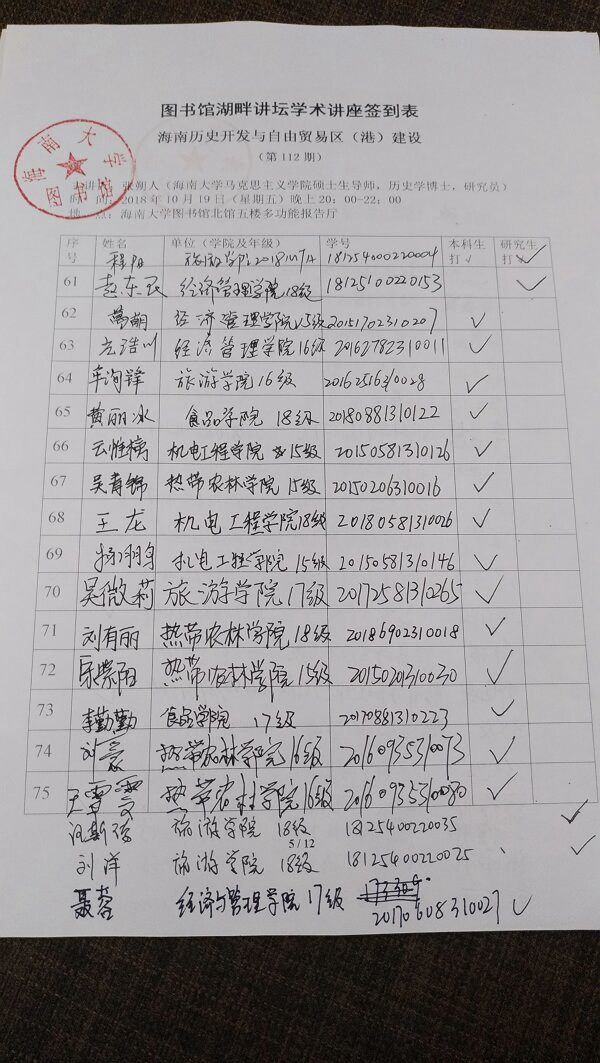 图书馆湖畔讲坛学术讲座签到表
海南历史开发与自由贸易区（港）建设
（第 112 期）
海南大学图书馆
张朔人（海南大学马克思主义学院硕士生导师，历史学博士，研究员）
间：2018 年 10 月 19 日（星期五）晚上 20：00-22：00
点：海南大学图书馆北馆五楼多功能报告厅
序号 姓名 单位（学院及年级） 学号 本科生打√ 研究生打√
程阳 旅游学院2018 18125400220004 √
61 赵东民 经济管理学院18级 18125100220153 √
62 经济管理学院15级 20151702310207 √
63 经济管理学院16级 20162782310011 √
64 旅游学院16级 20162516310028 √
65 黄丽冰 食品学院 18级 20180881310122 √
66 机电工程学院 15级 20150581310126 √
67 吴青锦 热带农林学院15级 20150206310016 √
68 王龙 机电工程学院18级 20180581310026 √
69 机电工程学院 15级 20150581310146 √
70 吴微莉 旅游学院17级 20172581310265 √
71 刘有丽 热带农林学院18级 20186902310018 √
72 热带农林学院15级 20150201310030 √
73 李勤勤 食品学院 17级 20170881310223 √
74 热带农林学院16级 20160935310073 √
75 王雪雯 热带农林学院16级 20160935310080 √
旅游学院 18级 18125400220035 √
5/12
刘洋 旅游学院 18级 18125400220025 √
聂蓉 经济与管理学院17级 20170608310027 √